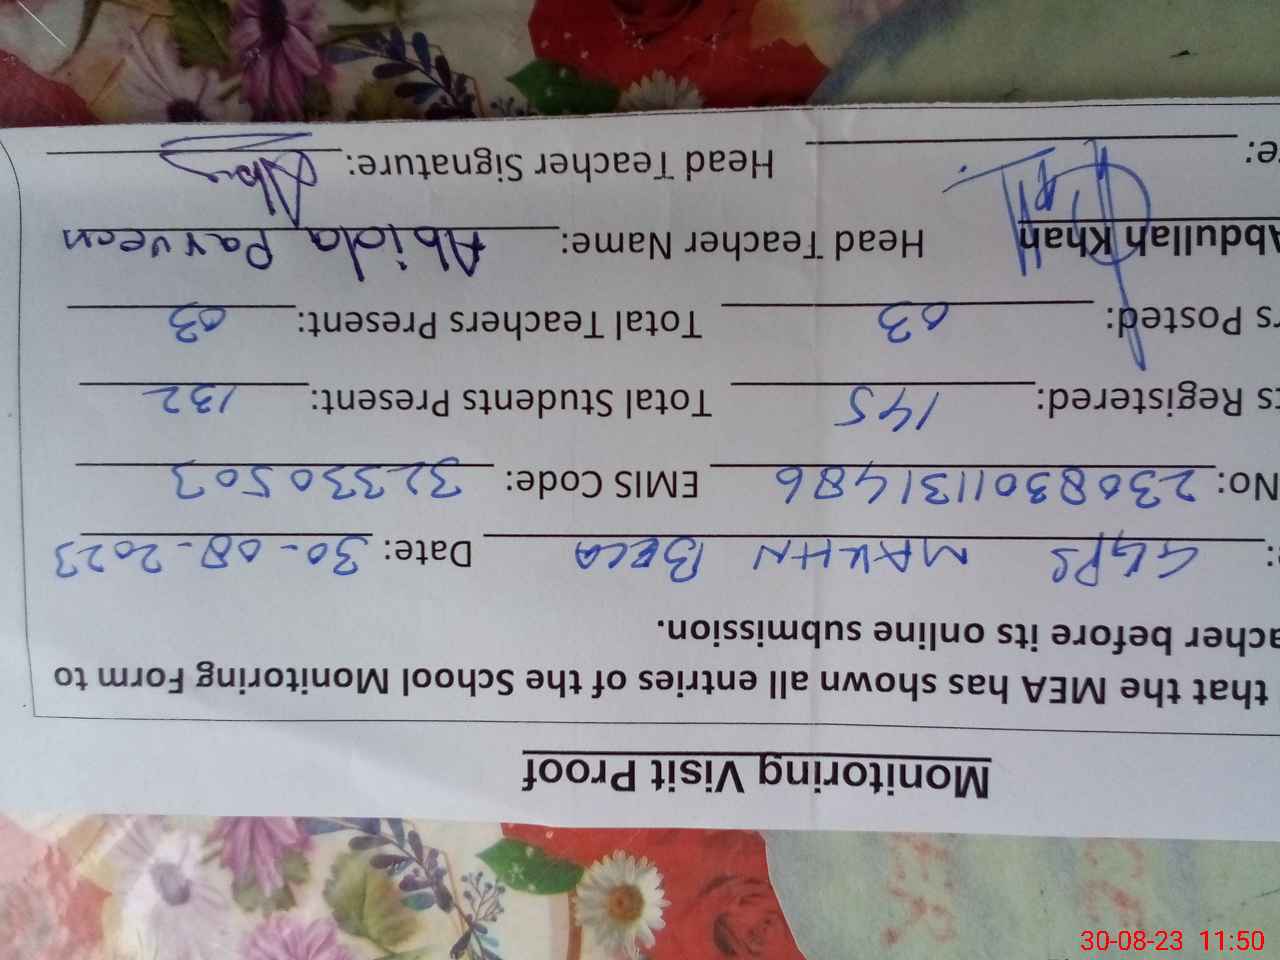 Monitoring Visit Proof
that the MEA has shown all entries of the School Monitoring Form to
acher before its online submission.
: GGPS MAKHN BELA Date: 30-08-2023
No: 2308301131486 EMIS Code: 32330503
s Registered: 145 Total Students Present: 132
rs Posted: 03 Total Teachers Present: 03
Abdullah Khan Head Teacher Name: Abida Parveen
e: Head Teacher Signature:
30-08-23 11:50